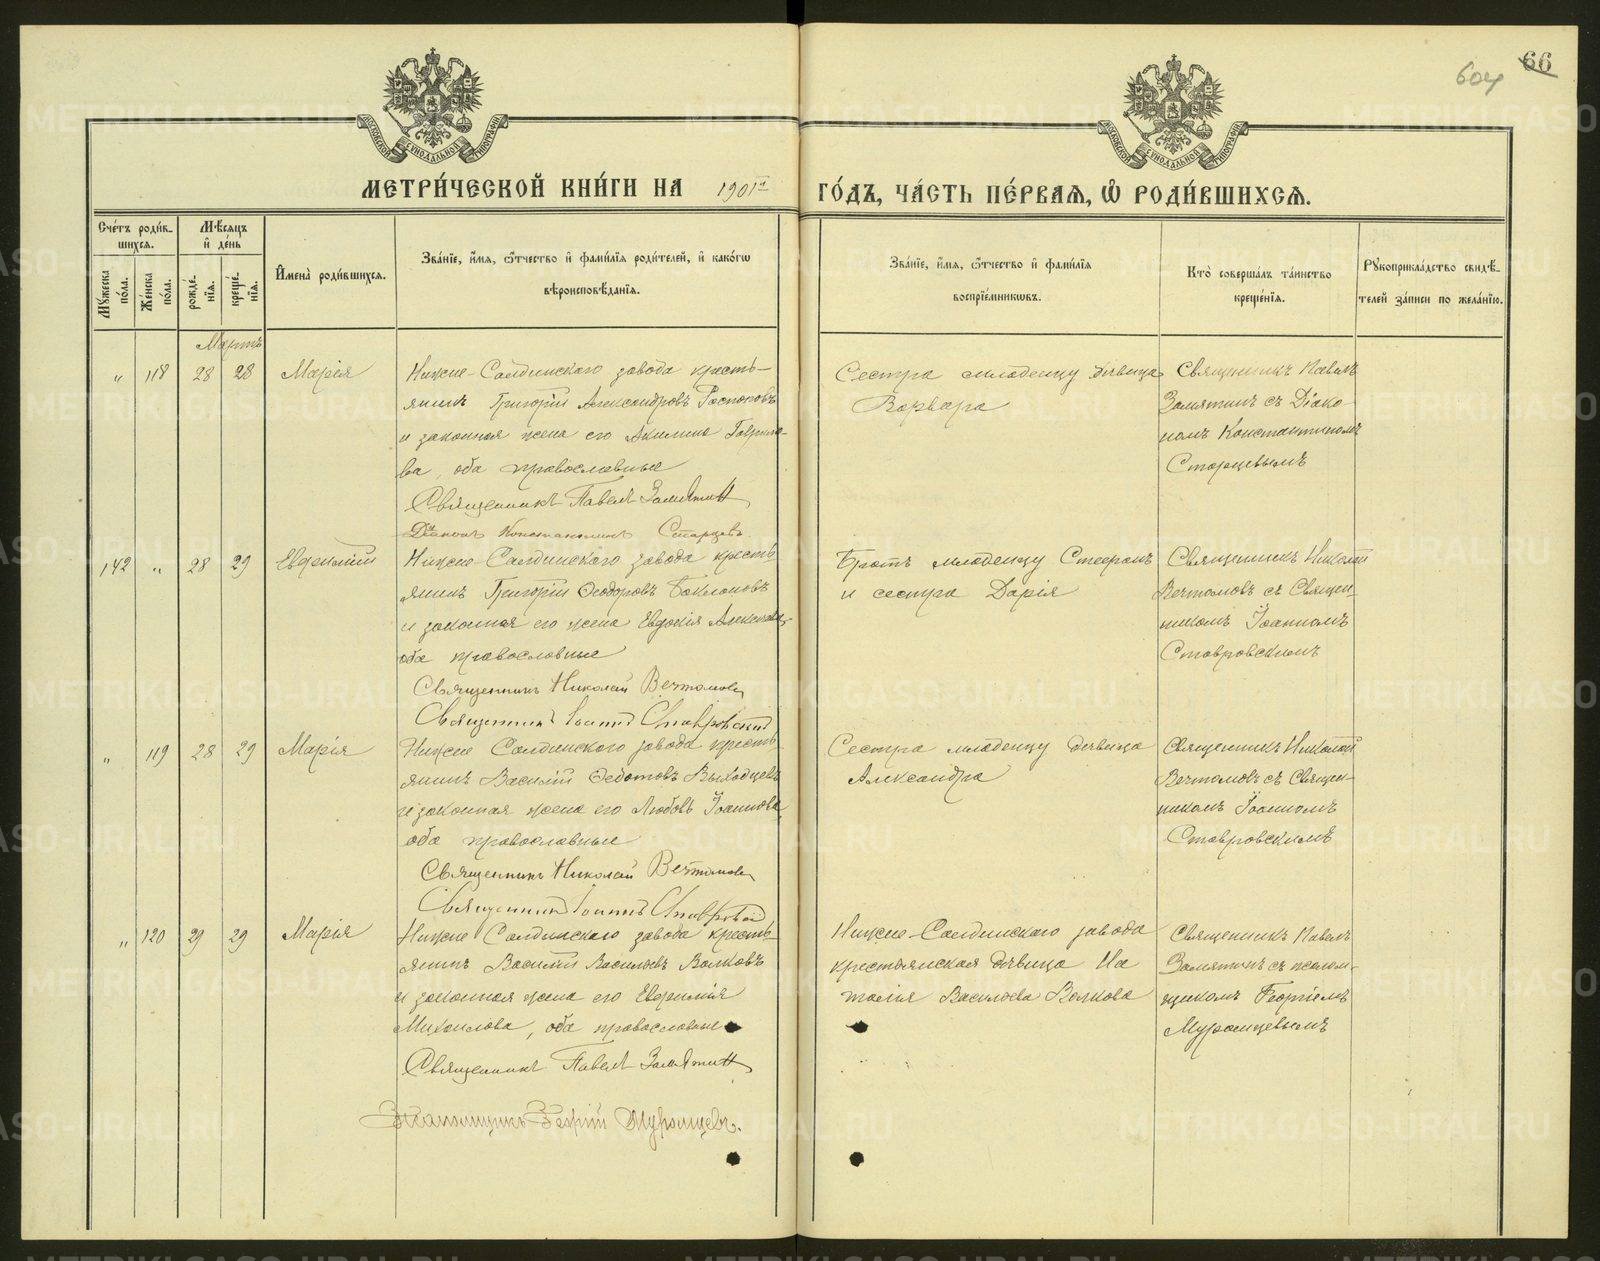 604
66
МОСКОВСКОЙ СѴНОДАЛЬНОЙ ТИПОГРАФІИ
МОСКОВСКОЙ СѴНОДАЛЬНОЙ ТИПОГРАФІИ
МЕТРИ́ЧЕСКОЙ КНИ́ГИ НА 1901й ГО́ДЪ, ЧА́СТЬ ПЕ́РВАѦ, Ѡ РОДИ́ВШИХСѦ.
Сче́тъ роди́в-
шихсѧ.
Мѣ́сѧцъ
и҆ де́нь
Мꙋ́жеска по́ла.
Же́нска по́ла.
рожде́нїѧ.
креще́нїѧ.
И҆мена̀ роди́вшихсѧ.
Зва́нїе, и҆́мѧ, ѻ҆́тчество и҆ фами́лїѧ роди́телей, и҆ како́гѡ
вѣроисповѣ́данїѧ.
Зва́нїе, и҆́мѧ, ѻ҆́тчество и҆ фами́лїѧ
воспрїе́мникѡвъ.
Кто̀ соверша́лъ та́инство
креще́нїѧ.
Рꙋкоприкла́дство свидѣ́-
телей за́писи по жела́нїю.
Мартъ
„ 118 28 28 Марія
Нижне-Салдинскаго завода кресть-
янинъ Григорій Александровъ Распоповъ
и законная жена его Акилина Гаврило-
ва, оба православные
Священникъ Павелъ Замятинъ
Діаконъ Константинъ Старцевъ
Сестра младенцу дѣвица
Варвара
Священникъ Павелъ
Замятинъ съ Діако-
номъ Константиномъ
Старцевымъ
142 „ 28 29 Евфимій
Нижне-Салдинскаго завода кресть-
янинъ Григорій Ѳеодоровъ Баклановъ
и законная его жена Евдокія
оба православные
Священникъ Николай Вечтомовъ
Священникъ Іоаннъ Ставровскій
Братъ младенцу Стефанъ
и сестра Дарія
Священникъ Николай
Вечтомовъ съ Священ-
никомъ Іоанномъ
Ставровскимъ
„ 119 28 29 Марія
Нижне Салдинскаго завода кресть-
янинъ Василій Ѳедотовъ Выходцевъ
и законная жена его Любовь Іоаннова
оба православные
Священникъ Николай Вечтомовъ
Священникъ Іоаннъ Ставровскій
Сестра младенцу дѣвица
Александра
Священникъ Николай
Вечтомовъ съ Священ-
никомъ Іоанномъ
Ставровскимъ
„ 120 29 29 Марія
Нижне Салдинскаго завода кресть-
янинъ Василій Васильевъ Волковъ
и законная жена его Евфимія
Михаилова, оба православные
Священникъ Павелъ Замятинъ
Псаломщикъ Георгій Муромцевъ.
Нижне-Салдинскаго завода
крестьянская дѣвица На
талія Васильева Волкова
Священникъ Павелъ
Замятинъ съ псалом-
щикомъ Георгіемъ
Муромцевымъ
METRIKI.GASO-URAL.RU